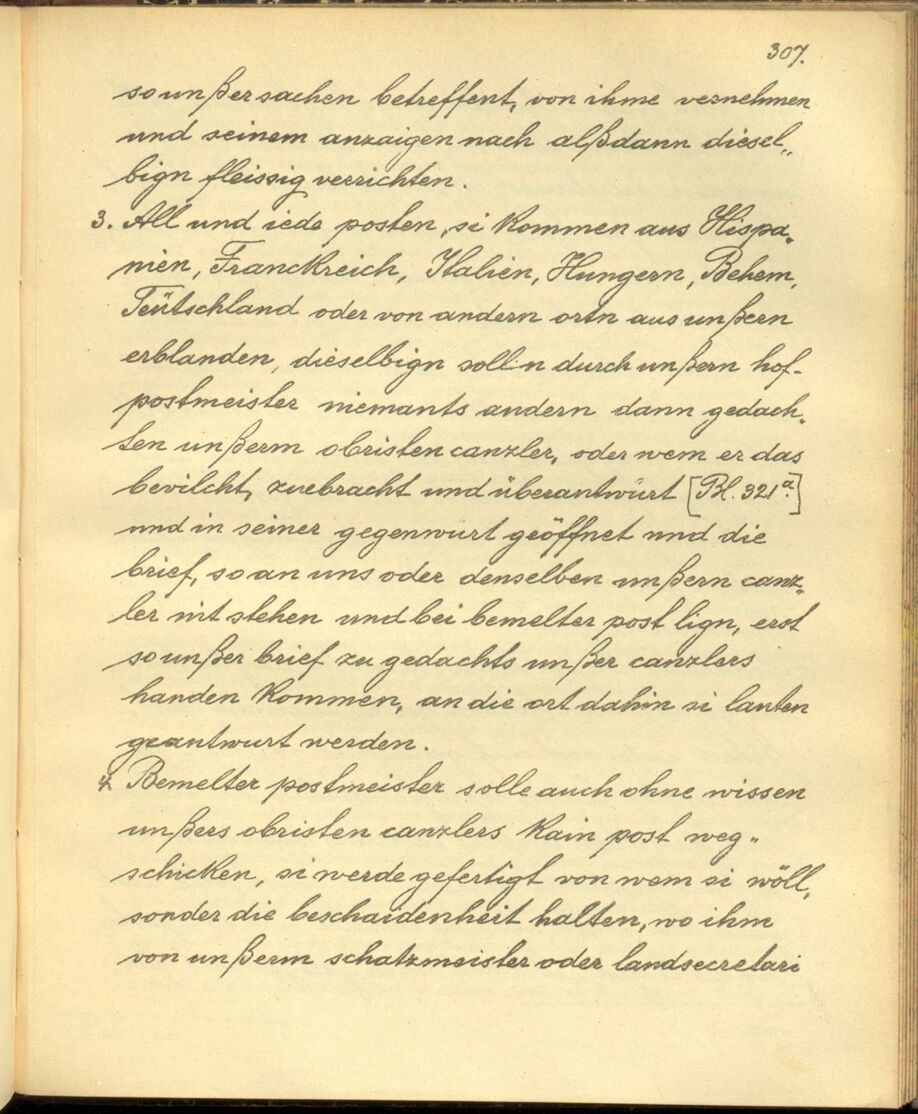 307.
so unßer sachen betreffent, von ihme vernehmen
und seinem anzaigen nach alßdann diesel„
bign fleissig verrichten.
3. All und iede posten, si kommen aus Hispa„
nien, Franckreich, Italien, Hungern, Behem,
Teütschland oder von andern ortn aus unßern
erblanden, dieselbign solln durch unßern hof-
postmeister niemants andern dann gedach„
ten unßerm obristen canzler, oder wem er das
bevilcht, zuebracht und überantwurt [Bl. 321a.]
und in seiner gegenwurt geöffnet und die
brief, so an uns oder denselben unßern canz„
ler nit stehen und bei bemelter post lign, erst
so unßer brief zu gedachts unßer canzlers
handen kommen, an die ort dahin si lauten
geantwurt werden.
4. Bemelter postmeister solle auch ohne wissen
unßers obristen canzlers kain post weg„
schicken, si werde gefertigt von wem si wöll,
sonder die beschaidenheit halten, wo ihm
von unßerm schatzmeister oder landsecretari